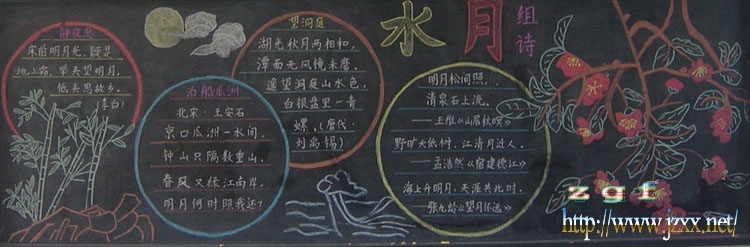 水月
组诗
静夜思
床前明月光，疑是
地上霜。举头望明月，
低头思故乡。
(李白)
泊船瓜洲
北宋·王安石
京口瓜洲一水间，
钟山只隔数重山。
春风又绿江南岸，
明月何时照我还？
望洞庭
湖光秋月两相和，
潭面无风镜未磨。
遥望洞庭山水色，
白银盘里一青
螺。(唐代·
刘禹锡)
明月松间照，
清泉石上流。
——王维《山居秋暝》
野旷天低树，江清月近人。
——孟浩然《宿建德江》
海上升明月，天涯共此时。
张九龄《望月怀远》
zgf
http://www.jzxx.net/